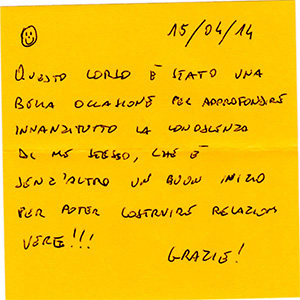 15/04/14
QUESTO CORSO È STATO UNA
BELLA OCCASIONE PER APPROFONDIRE
INNANZITUTTO LA CONOSCENZA
DI ME STESSO, CHE È
SENZ'ALTRO UN BUON INIZIO
PER POTER COSTRUIRE RELAZIONI
VERE!!!
GRAZIE!